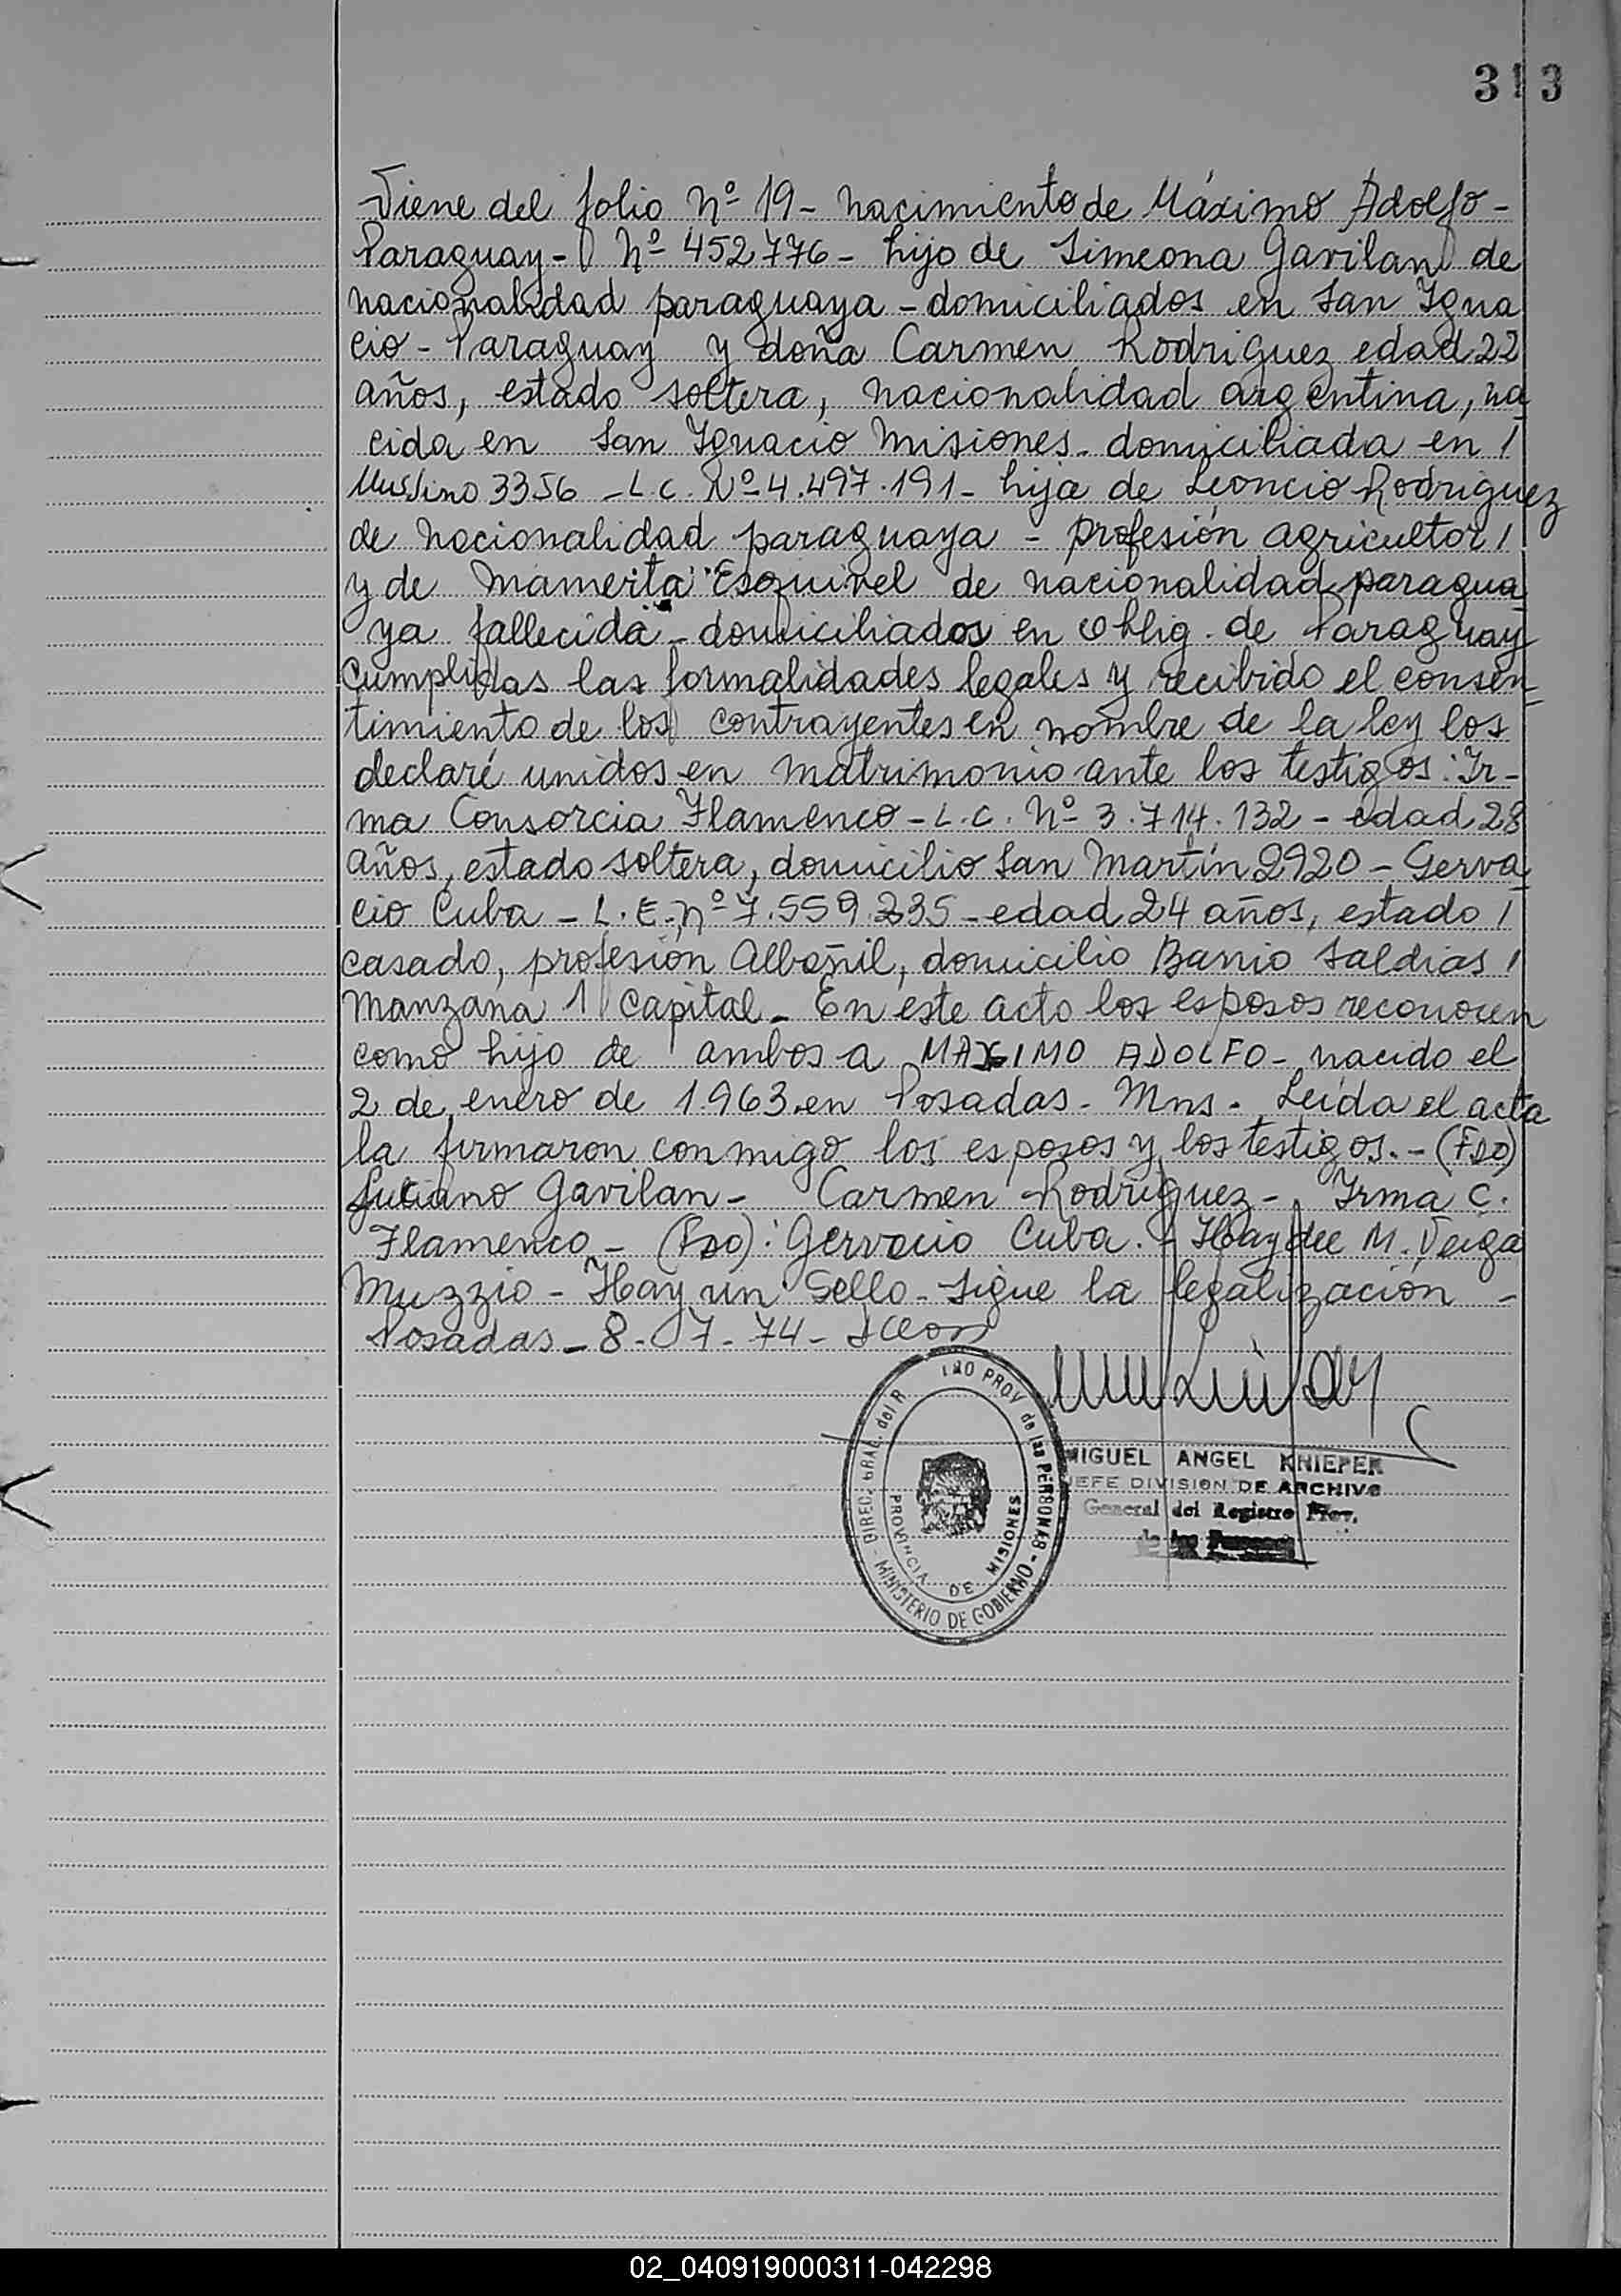 313
Viene del folio Nº 19 - nacimiento de Máximo Adolfo -
Paraguay - Nº 452776 - hijo de Simeona Gavilan de
nacionalidad paraguaya - domiciliados en San Igna
cio - Paraguay y doña Carmen Rodriguez edad 22
años, estado soltera, nacionalidad argentina, na
cida en San Ignacio Misiones - domiciliada en /
3356 - L.C. Nº 4.497.191 - hija de Leoncio Rodriguez
de nacionalidad paraguaya - profesión agricultor /
y de Mamerta Esquivel de nacionalidad paragua
ya fallecida - domiciliados en Oblig. de Paraguay
Cumplidas las formalidades legales y recibido el consen-
timiento de los contrayentes en nombre de la ley los
declaré unidos en matrimonio ante los testigos: Ir-
ma Consorcia Flamenco - L.C. Nº 3.714.132 - edad 28
años, estado soltera, domicilio San Martín 2920 - Gerva
cio Cuba - L.E. Nº 7.559.235 - edad 24 años, estado /
casado, profesión Albañil, domicilio Barrio Saldias /
Manzana 1 Capital - En este acto los esposos reconocen
como hijo de ambos a MAXIMO ADOLFO - nacido el
2 de enero de 1.963 en Posadas - Mns. Leida el acta
la firmaron conmigo los esposos y los testigos. - (Fdo)
Luciano Gavilan - Carmen Rodriguez - Irma C.
Flamenco - (Fdo): Gervacio Cuba. - Haydee M. Veiga
Muzzio - Hay un Sello - Sigue la legalización -
Posadas - 8 - 7 - 74 -
DIREC. GRAL. del R PROV de las PERSONAS - MINISTERIO DE GOBIERNO -
PROVINCIA DE MISIONES
MIGUEL ANGEL KNIEPER
JEFE DIVISION DE ARCHIVO
General del Registro Prov.
de las Personas
02_040919000311-042298